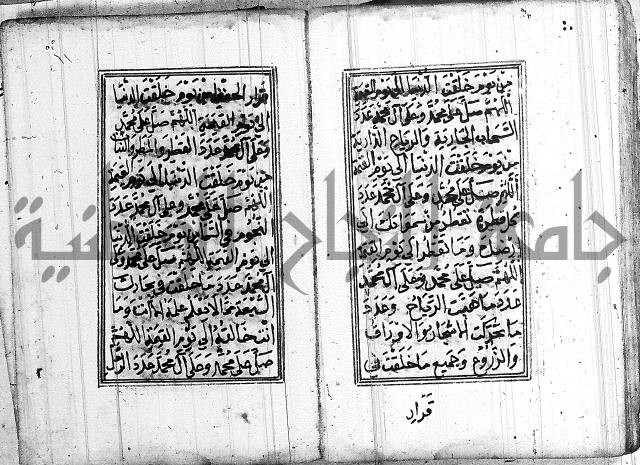 من يوم خلقت الدنيا الى يوم القيمة
اللهم صل على محمد وعلى آل محمد عدد
السحاب الجارية والرياح الذارية
من يوم خلقت الدنيا الى يوم القيمة
اللهم صل على محمد وعلى آل محمد عدد
كل قطرة تقطر من سمواتك الى
ارضك وما تقطر الى يوم القيمة
اللهم صل على محمد وعلى آل محمد
عدد ما هبت الرياح وعدد
ما تحركت الاشجار والاوراق
والزروع وجميع ما خلقت في
قرار
قرار الحفظ من يوم خلقت الدنيا
الى يوم القيمة اللهم صل على محمد
وعلى آل محمد عدد القطر والمطر والنبات
من يوم خلقت الدنيا الى يوم القيمة
اللهم صل على محمد وعلى آل محمد عدد
النجوم في السماء من يوم خلقت الدنيا
الى يوم القيمة اللهم صل على محمد وعلى
آل محمد عدد ما خلقت في بحارك
السبعة مما لا يعلم علمه الا انت وما
انت خالقه الى يوم القيمة اللهم
صل على محمد وعلى آل محمد عدد الرمل
جامعة النجاح الوطنية